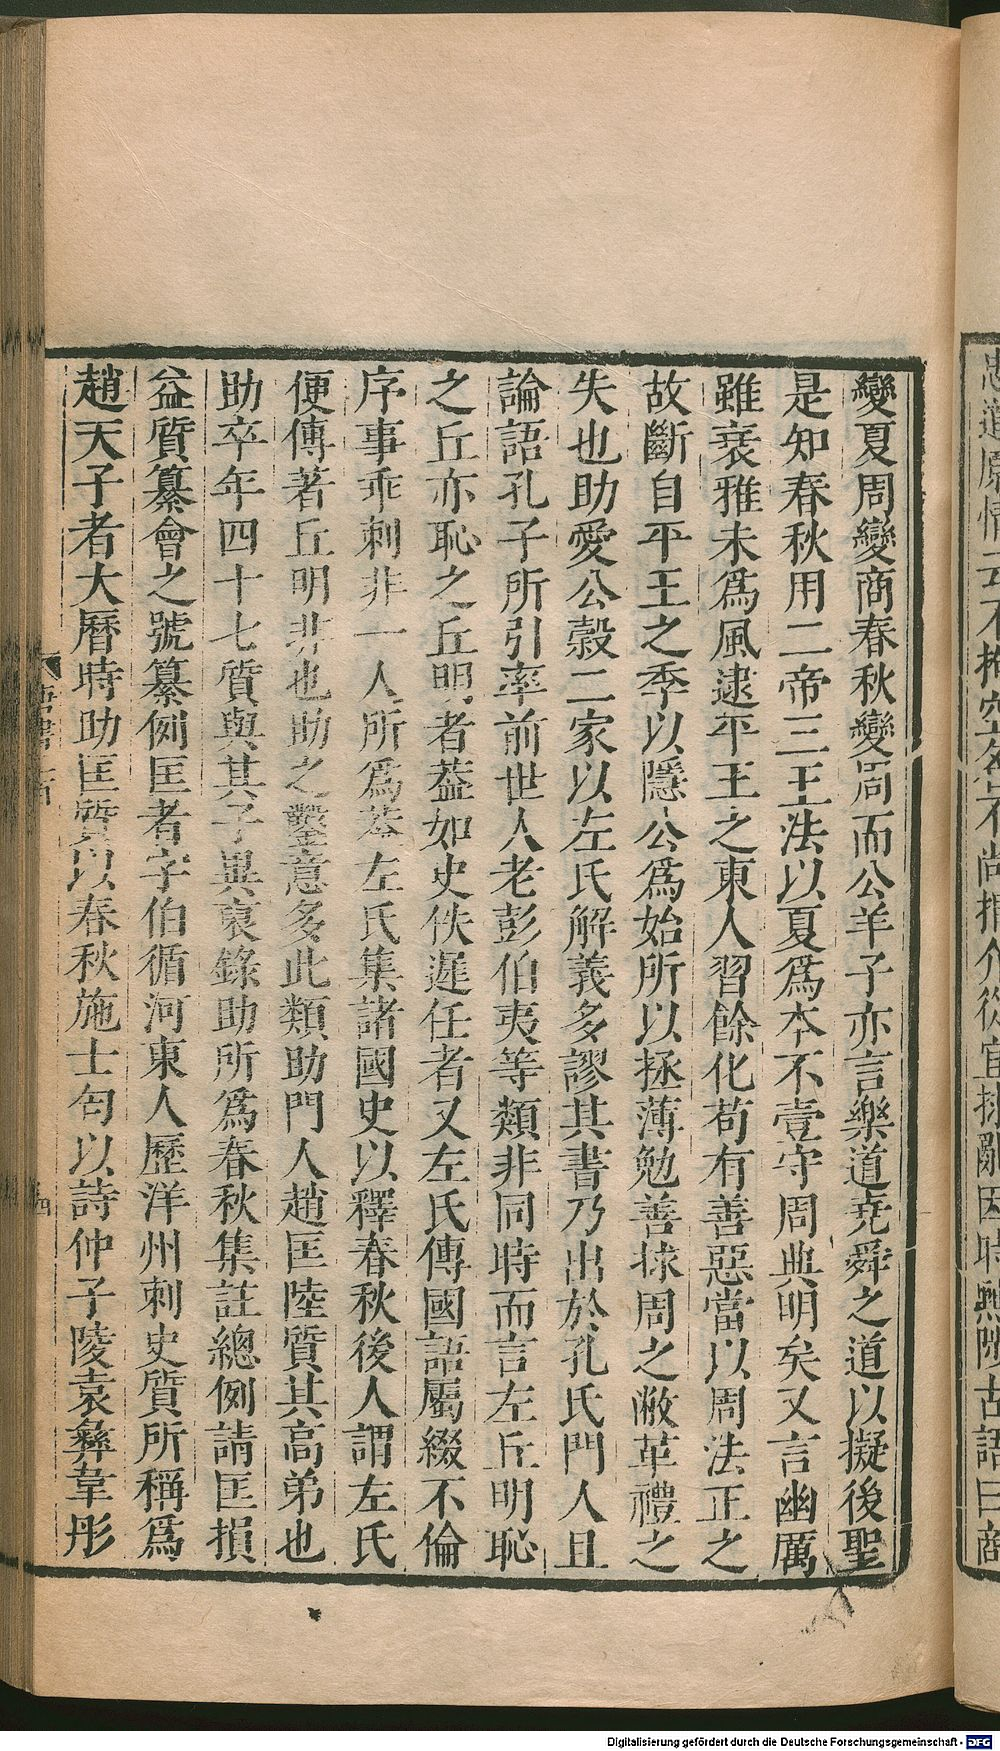 忠道原情云不拘空名不尚狷介從宜救亂因時黜陟古語曰商
變夏周變商春秋變周而公羊子亦言樂道堯舜之道以擬後聖
是知春秋用二帝三王法以夏爲本不壹守周典明矣又言幽厲
雖衰雅未爲風逮平王之東人習餘化苟有善惡當以周法正之
故斷自平王之季以隱公爲始所以拯薄勉善捄周之敝革禮之
失也助愛公穀二家以左氏解義多謬其書乃出於孔氏門人且
論語孔子所引率前世人老彭伯夷等類非同時而言左丘明恥
之丘亦恥之丘明者葢如史佚遲任者又左氏傳國語屬綴不倫
序事乖剌非一人所爲葢左氏集諸國史以釋春秋後人謂左氏
便傳著丘明非也助之鑿意多此類助門人趙匡陸質其高弟也
助卒年四十七質與其子異裒錄助所爲春秋集註總例請匡損
益質纂會之號纂例匡者字伯循河東人歷洋州刺史質所稱爲
趙夫子者大曆時助匡質以春秋施士匄以詩仲子陵袁彝韋彤
唐書二百
四
Digitalisierung gefördert durch die Deutsche Forschungsgemeinschaft - DFG